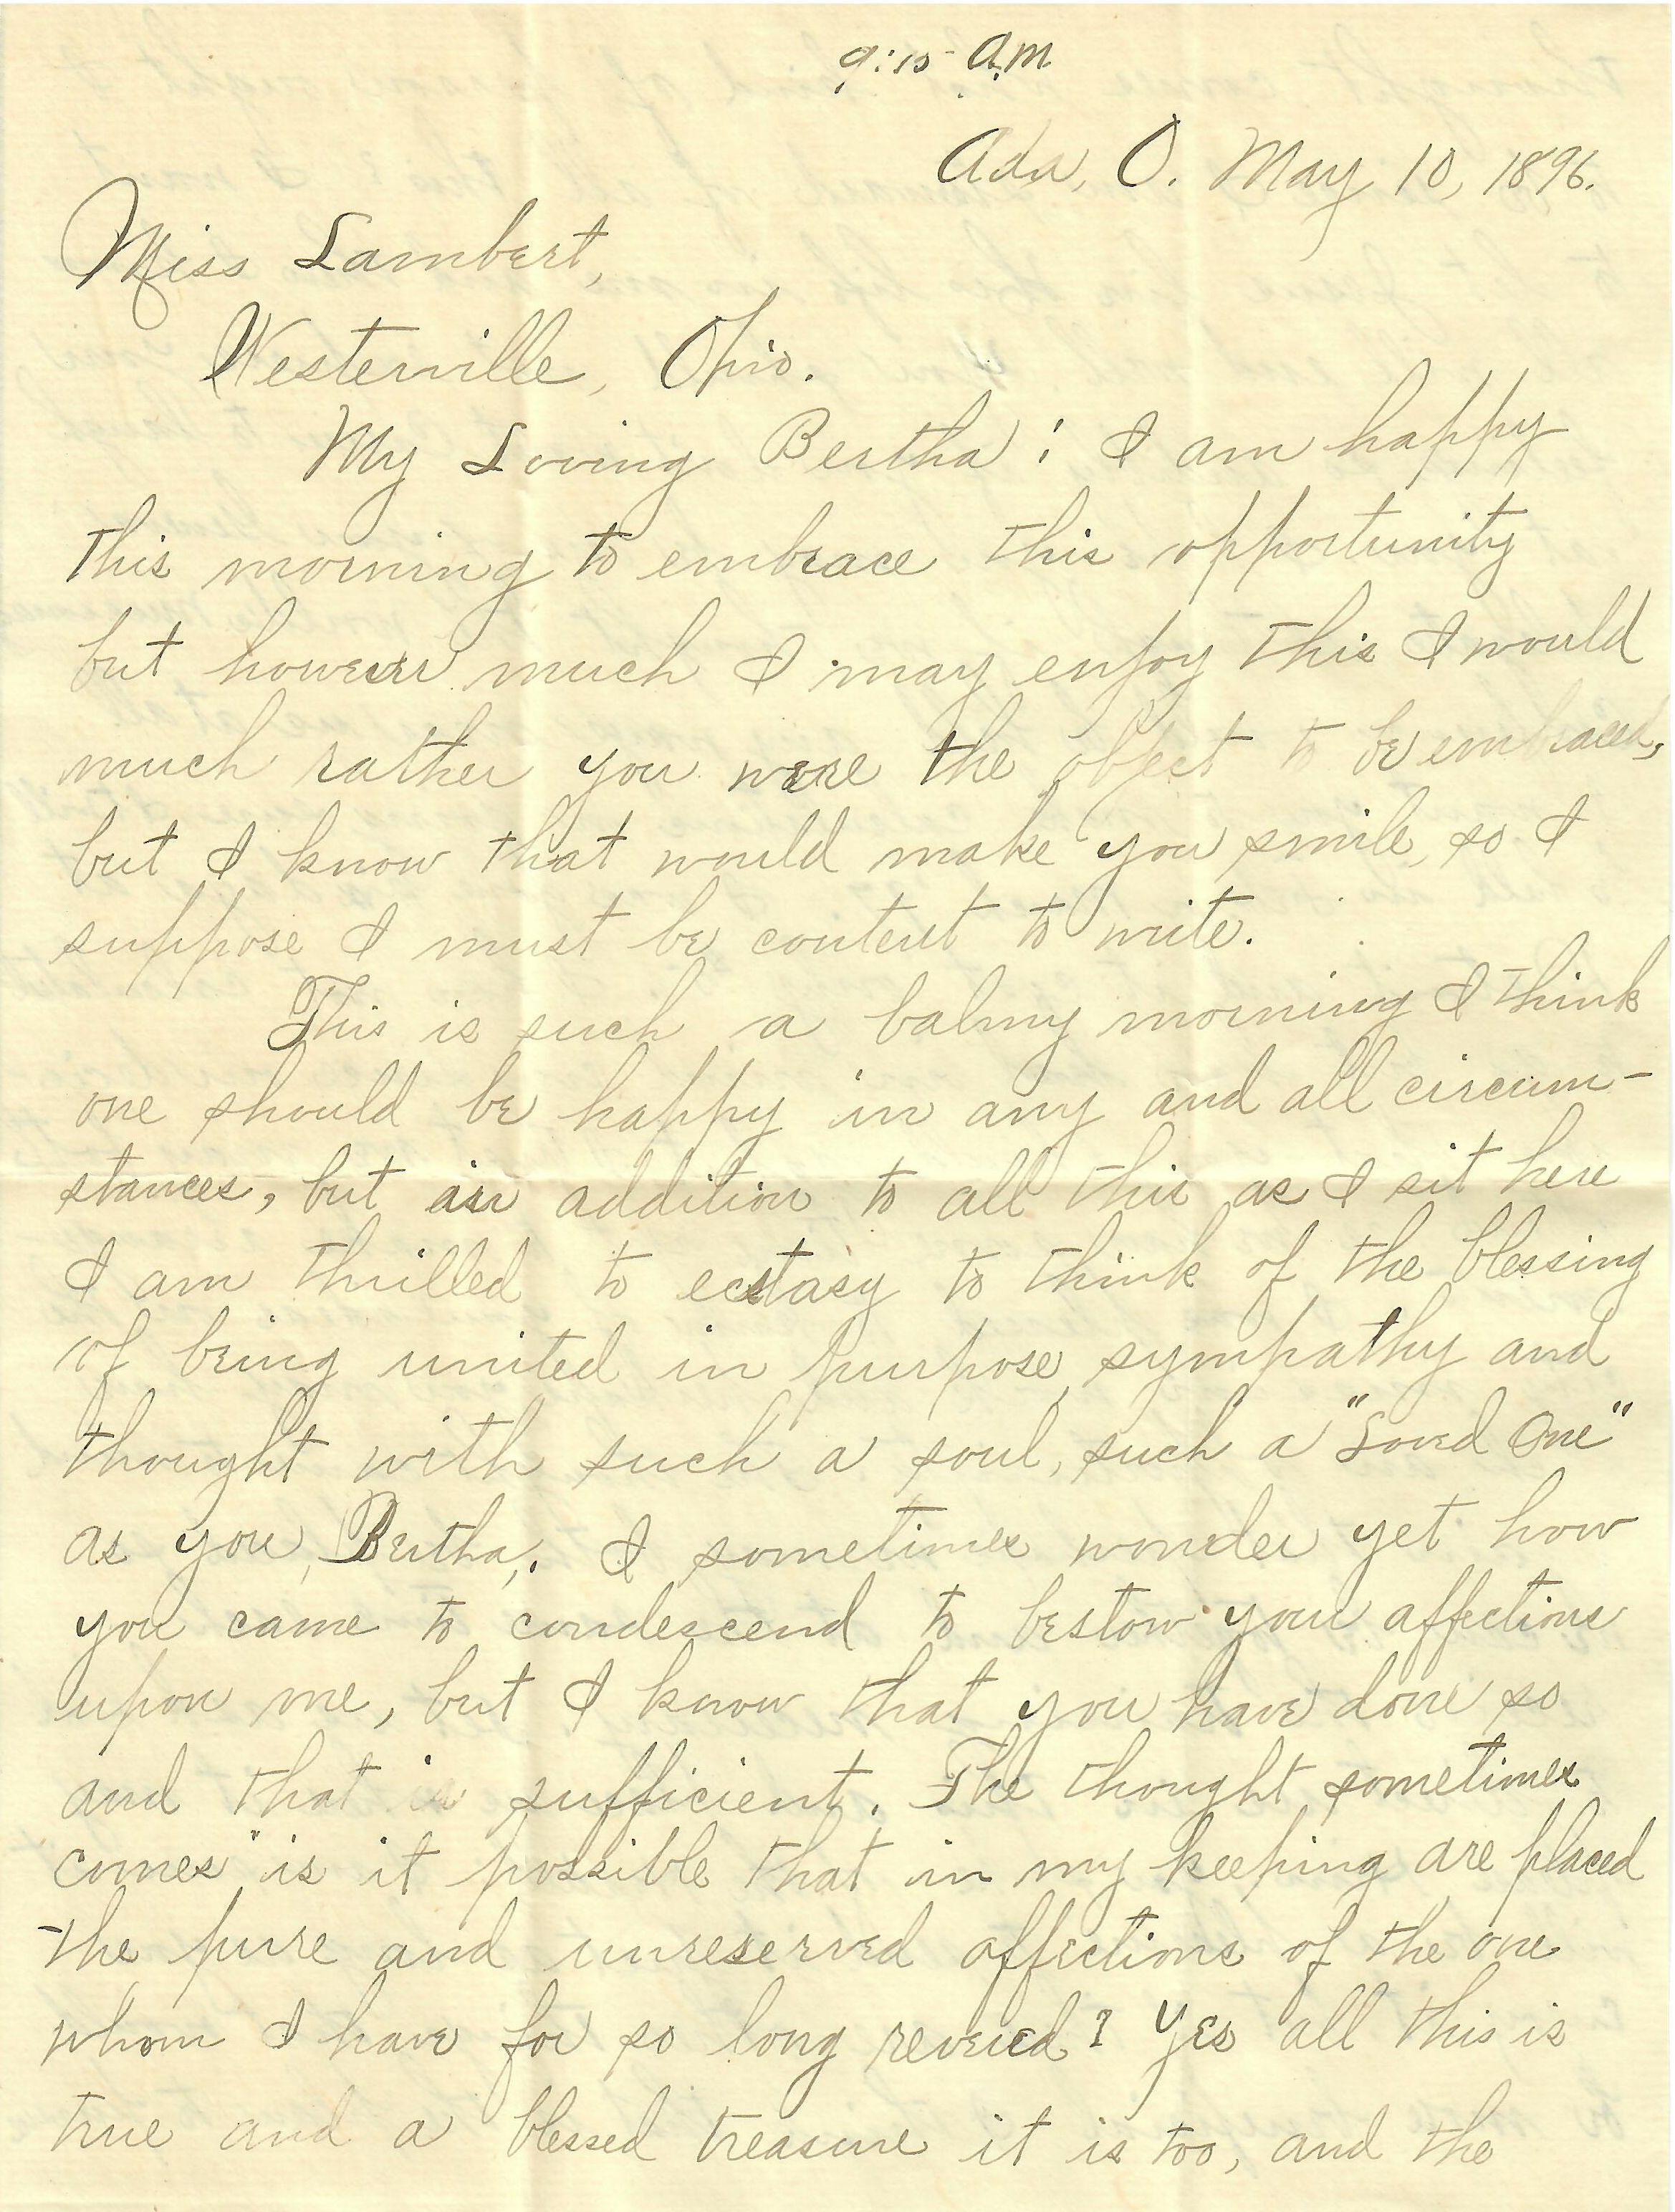 9:15 A.M
Ada, O. May 10, 1896.
Miss Lambert,
Westerville, Ohio.
My Loving Bertha: I am happy
this morning to embrace this opportunity
but however much I may enjoy this I would
much rather you were the object to be embraced,
but I know that would make you smile, so I
suppose I must be content to write.
This is such a balmy morning I think
one should be happy in any and all circum-
stances, but in addition to all this as I sit here
I am thrilled to ecstasy to think of the blessing
of being united in purpose, sympathy and
thought with such a soul, such a "Loved One"
as you, Bertha,. I sometimes wonder yet how
you came to condescend to bestow your affections
upon me, but I know that you have done so
and that is sufficient. The thought sometimes
comes "is it possible that in my keeping are placed
the pure and unreserved affections of the one
whom I have for so long revered? Yes all this is
true and a blessed treasure it is too, and the